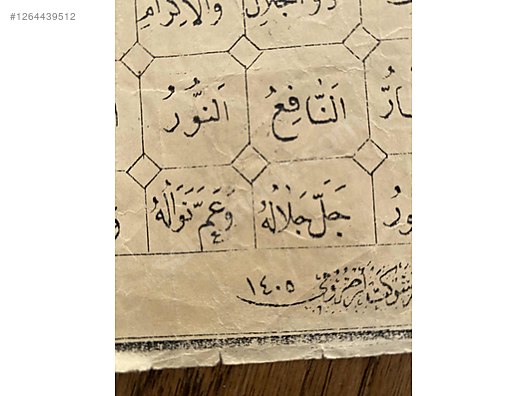 #1264439512
ذو الجلال والإكرام
ـارُّ اَلنَّافِعُ اَلنُّورُ
ـورُ جَلَّ جَلَالُهُ وَعَمَّ نَوَالُهُ
١٤٠٥